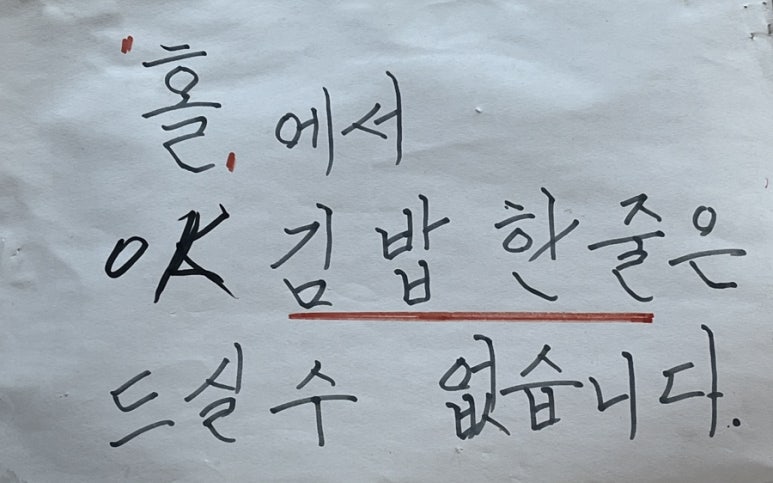 "홀" 에서
OK 김밥 한줄은
드실수 없습니다.